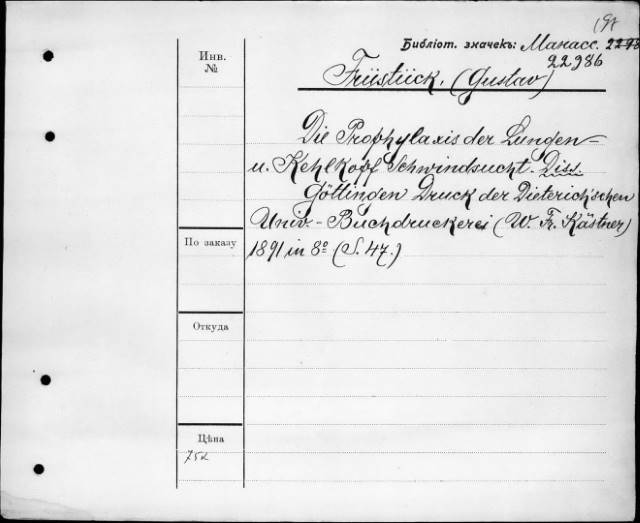 Библіот. значекъ: Манасс.
22986
Инв.
№
Früstück. (Gustav)
Die Prophylaxis der Lungen-
u. Kehlkopf Schwindsucht. Diss.
Göttingen Druck der Dieterich'schen
Univ.- Buchdruckerei (W. Fr. Kästner)
По заказу
1891 in 8º (S. 47.)
Откуда
Цѣна